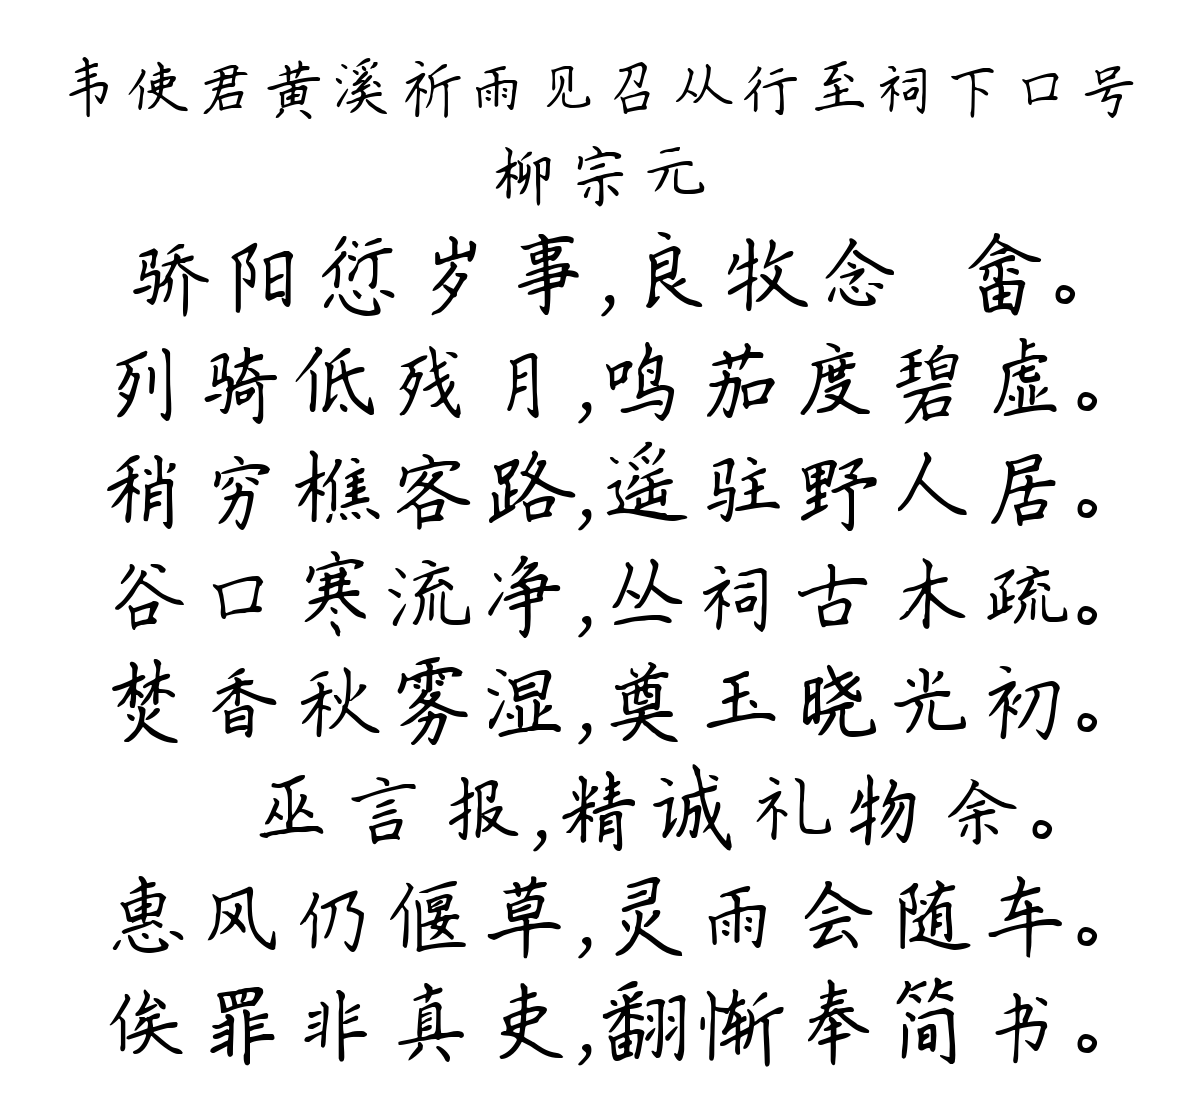 韦使君黄溪祈雨见召从行至祠下口号
柳宗元
骄阳愆岁事,良牧念 畲。
列骑低残月,鸣茄度碧虚。
稍穷樵客路,遥驻野人居。
谷口寒流净,丛祠古木疏。
焚香秋雾湿,奠玉晓光初。
巫言报,精诚礼物余。
惠风仍偃草,灵雨会随车。
俟罪非真吏,翻惭奉简书。